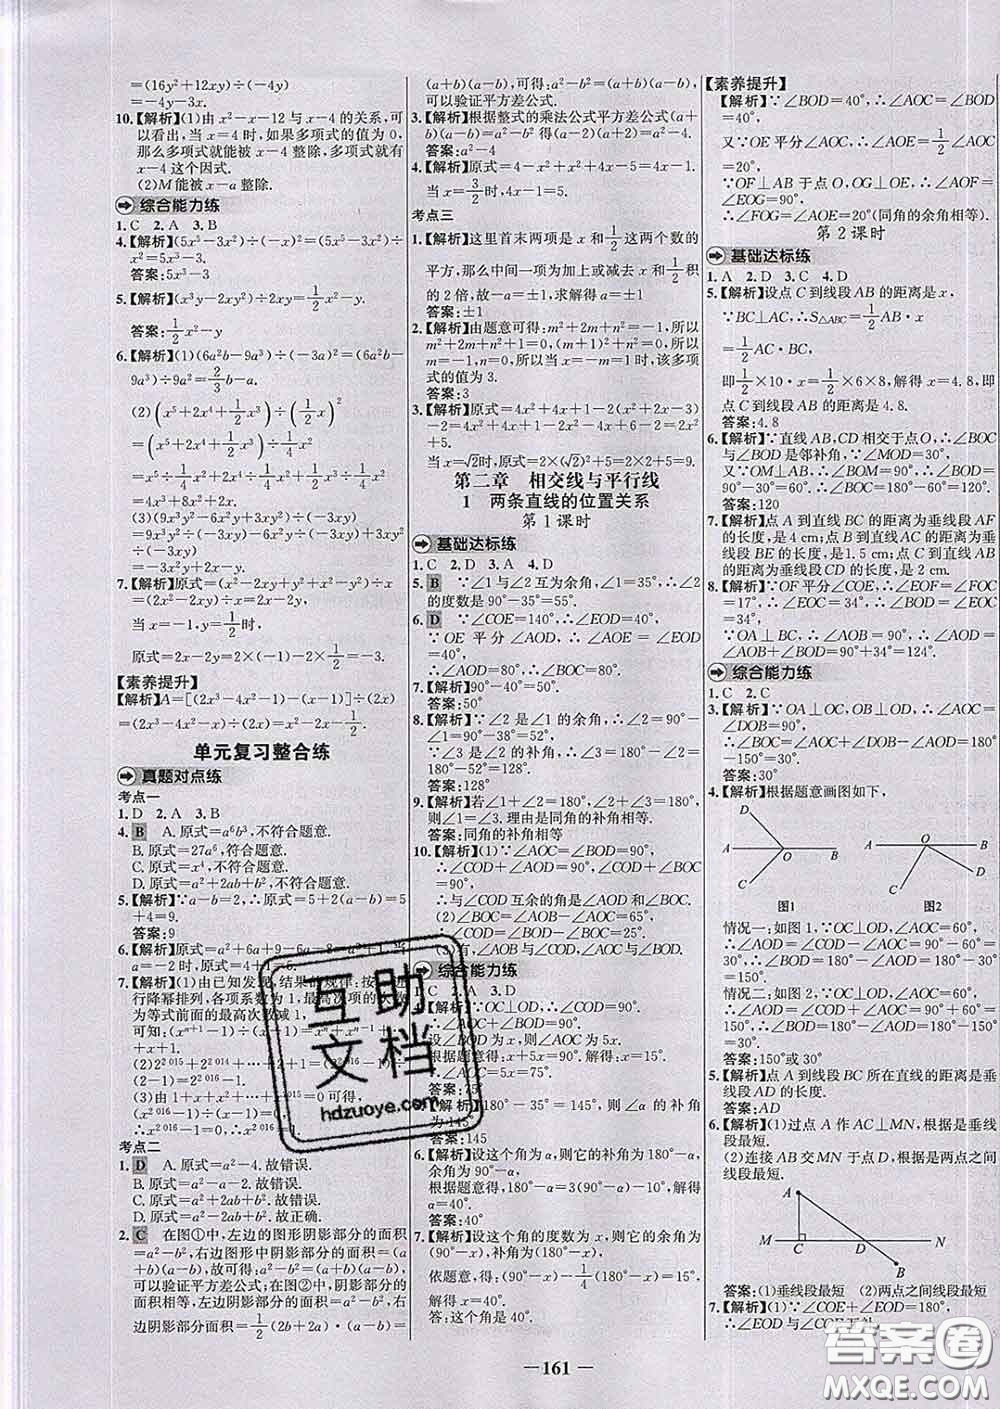 =(16y²+12xy)÷(-4y)
=-4y-3x.
10.【解析】(1)由 x²-x-12 与 x-4 的关系,可
以看出,当 x=4 时,如果多项式的值为 0,
那么多项式就能被 x-4 整除,多项式就有
x-4 这个因式.
(2)M 能被 x-a 整除.
综合能力练
1. C 2. A 3. B
4.【解析】(5x⁵-3x²)÷(-x)²=(5x⁵-3x²)÷
x²=5x³-3
答案:5x³-3
5.【解析】(x³y-2xy²)÷2xy=1/2x²-y.
答案:1/2x²-y
6.【解析】(1)(6a²b-9a³)÷(-3a)²=(6a²b-
9a³)÷9a²=2/3b-a.
(2)(x⁵+2x⁴+1/2x³)÷(1/2x)²
=(x⁵+2x⁴+1/2x³)÷1/4x²
=x⁵÷1/4x²+2x⁴÷1/4x²+1/2x³÷1/4x²
=4x³+8x²+2x.
(3)(9x³y-6x²y²+3xy³)÷3xy
=9x³y÷3xy-6x²y²÷3xy+3xy³÷3xy
=3x²-2xy+y².
7.【解析】原式=(x²-2xy+x²+2xy-x)÷x
=(2x²-x)÷x=2x-1
当 x=-1,y=1/2时,
原式=2x-1=2×(-1)-1=-3.
【素养提升】
【解析】A=[(2x³-4x²-1)-(x-1)]÷(2x)
=(2x³-4x²-x)÷(2x)=x²-2x-1/2.
单元复习整合练
真题对点练
考点一
1. D 2. A 3. B
4. B A. 原式=a⁶b³,不符合题意.
B. 原式=27a⁶,符合题意.
C. 原式=x⁴,不符合题意.
D. 原式=a²+2ab+b²,不符合题意.
5.【解析】∵a-b=2,∴原式=5+2(a-b)=5
+4=9.
答案:9
6.【解析】原式=a²+6a+9-6a-8=a²+1,当
a=-2时,原式=4+1=5.
7.【解析】(1)由已知发现,结果的规律:按
进行降幂排列,各项系数为1,最高次项的次数
为等式前面的最高次数减1
可知:(xⁿ⁺¹-1)÷(x-1)=xⁿ+xⁿ⁻¹+…+x³+x²
+x+1.
(2)2²⁰¹⁵+2²⁰¹⁴+…+
(2-1)=2²⁰¹⁶-1.
(3)由 1+x+x²+…+x²⁰¹⁵=0可得,
(x²⁰¹⁶-1)÷(x-1)=0,
∴x²⁰¹⁶-1=0,∴x²⁰¹⁶=1.
考点二
1. D A. 原式=a²-4. 故错误.
B. 原式=a²-a-2. 故错误.
C. 原式=a²+2ab+b². 故错误.
D. 原式=a²-2ab+b². 故正确.
2. C 在图①中,左边的图形阴影部分的面积
=a²-b²,右边图形中阴影部分的面积=(a+
b)(a-b),故可得:a²-b²=(a+b)(a-b),
可以验证平方差公式;在图②中,阴影部分的
面积相等,左边阴影部分的面积=a²-b²,
右边阴影部分面积=1/2(2b+2a)·(a-b)=
(a+b)(a-b),可得:a²-b²=(a+b)(a-b),
可以验证平方差公式.
3.【解析】根据整式的乘法公式平方差公式(a+
b)(a-b)=a²-b² 得(a-2)(a+2)=a²-4.
答案:a²-4
4.【解析】原式=4-x²+x²+4x-5=4x-1.
当 x=3/2时,4x-1=5.
考点三
1.【解析】这里首末两项是 x 和1/2这两个数的
平方,那么中间一项为加上或减去 x 和1/2积
的 2 倍,故-a=±1,求解得a=±1
答案:±1
2.【解析】由题意可得:m²+2m+n²=-1,所以
m²+2m+1+n²=0,(m+1)²+n²=0,所以
m=-1,n=0,所以当 x=-m=1时,该多项
式的值为 3.
答案:3
3.【解析】原式=4x²+4x+1-2(x²+2x-3)
-2=4x²+4x+1-2x²-4x+6-2=2x²
+5.
当 x=√2时,原式=2×(√2)²+5=2×2+5=9.
第二章 相交线与平行线
1 两条直线的位置关系
第 1 课时
基础达标练
1. C 2. D 3. A 4. C
5. B ∵∠1与∠2互为余角,∠1=35°,∴∠2
的度数是 90°-35°=55°.
6. D ∵∠COE=140°,∴∠EOD=40°,
∵ OE 平分∠AOD,∴∠AOE=∠EOD
=40°;
∴∠AOD=80°,∴∠BOC=80°.
7.【解析】90°-40°=50°.
答案:50°
8.【解析】∵∠2 是∠1 的余角,∴∠2=90°-
∠1=90°-38°=52°;
∵∠3 是∠2 的补角,∴∠3=180°-∠2=
180°-52°=128°.
答案:128°
9.【解析】若∠1+∠2=180°,∠3+∠2=180°,
则∠1=∠3. 理由是同角的补角相等.
答案:同角的补角相等
10.【解析】(1)∵∠AOC=∠BOD=90°,
∴∠COD+∠AOD=90°,∠COD+∠BOC
=90°,
∴与∠COD 互余的角是∠AOD和∠BOC.
(2)∵∠BOC=65°,∠BOD=90°,
∴∠COD=∠BOD-∠BOC=25°.
(3)有,∠AOB与∠COD,∠AOC与∠BOD.
综合能力练
1. C 2. A 3. D
∵OC⊥OD,∴∠COD=90°.
设∠BOD为 x,则∠AOC为 5x.
根据题意得:x+5x=90°. 解得:x=15°.
∴∠AOC=5x=75°.
180°-35°=145°,则∠α 的补角
为 145°.
答案:145
6.【解析】设这个角为α,则它的补角为 180°-
α,余角为90°-α,
根据题意得,180°-α=3(90°-α)-10°,
解得α=40°.
答案:40°
7.【解析】设这个角的度数为 x,则它的余角为
(90°-x),补角为(180°-x),
依题意,得:(90°-x)-1/4(180°-x)=15°.
解得:x=40°.
答:这个角是 40°.
【素养提升】
【解析】∵∠BOD=40°,∴∠AOC=∠BOD
=40°,
又∵OE 平分∠AOC,∴∠AOE=1/2∠AOC
=20°.
∵OF⊥AB 于点 O,OG⊥OE,∴∠AOF=
∠EOG=90°,
∴∠FOG=∠AOE=20°(同角的余角相等).
第 2 课时
基础达标练
1. A 2. D 3. C 4. D
5.【解析】设点 C 到线段 AB 的距离是 x,
∵BC⊥AC,∴S△ABC=1/2AB·x
=1/2AC·BC,
即1/2×10·x=1/2×6×8,解得 x=4.8,即
点 C 到线段 AB 的距离是 4.8.
答案:4.8
6.【解析】∵直线 AB,CD 相交于点O,∴∠BOC
与∠BOD 是邻补角,∵∠MOD=30°,
又∵OM⊥AB,∴∠BOM=90°,∴∠BOD=
90°-30°=60°,∴∠BOC=180°-60°=120°.
答案:120
7.【解析】点 A 到直线 BC 的距离为垂线段 AF
的长度,是 4 cm;点 B 到直线AC 的距离为垂
线段 BE 的长度,是 1.5 cm;点 C 到直线
AB 的距离为垂线段 CD 的长度,是 2 cm.
8.【解析】∵OF 平分∠COE,∴∠EOF=∠FOC
=17°,∴∠EOC=34°,∴∠BOD=∠EOC
=34°,
∵OA⊥BC,∴∠AOB=90°,∴∠AOD=
∠AOB+∠BOD=90°+34°=124°.
综合能力练
1. C 2. C
3.【解析】∵OA⊥OC,OB⊥OD,∴∠AOC=
∠DOB=90°.
∴∠BOC=∠AOC+∠DOB-∠AOD=90°
+90°-150°=30°.
答案:30°
4.【解析】根据题意画图如下,
D A O B C 图1
A O B C D 图2
情况一:如图 1,∵OC⊥OD,∠AOC=60°,
∴∠AOD=∠COD-∠AOC=90°-60°
=30°,
∴∠BOD=180°-∠AOD=180°-30°
=150°.
情况二:如图 2,∵OC⊥OD,∠AOC=60°,
∴∠AOD=∠COD+∠AOC=90°+60°
=150°,
∴∠BOD=180°-∠AOD=180°-150°
=30°.
答案:150°或 30°
5.【解析】点 A 到线段 BC 所在直线的距离是垂
线段 AD 的长度.
答案:AD
6.【解析】(1)过点 A 作 AC⊥MN,根据:垂线
段最短.
(2)连接 AB 交 MN 于点 D,根据:两点之间
线段最短.
A M C D N B
答案:(1)垂线段最短 (2)两点之间线段最短
7.【解析】(1)∵∠COE+∠EOD=180°,
∴∠EOD 与∠COE 互补.
— 161 —
互助
文档
hdzuoye.com
答案圈
MXQE.COM